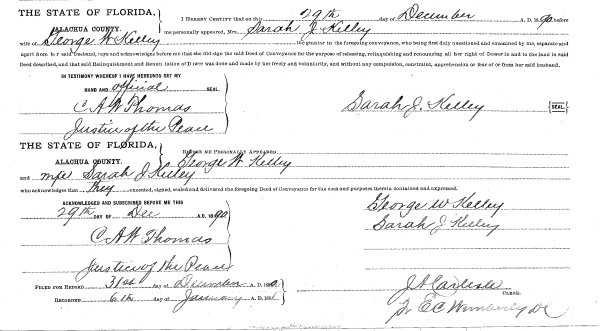 THE STATE OF FLORIDA,
ALACHUA COUNTY.
I HEREBY CERTIFY that on this 29th day of December A. D. 1890 before
me personally appeared, Mrs. Sarah J Kelley
wife of George W Kelley the grantor in the foregoing conveyance, who being first duly questioned and examined by me, separate and
apart from her said husband, says and acknowledges before me that she did sign the said Deed of Conveyance for the purpose of releasing, relinquishing and renouncing all her right of Dower in and to the land in said
Deed described, and that said Relinquishment and Renunciation of Dower was done and made by her freely and voluntarily, and without any compulsion, constraint, apprehension or fear of or from her said husband.
IN TESTIMONY WHEREOF I HAVE HEREUNTO SET MY
HAND AND official SEAL.
C A W Thomas
Justice of the Peace
Sarah J. Kelley {SEAL}
THE STATE OF FLORIDA,
ALACHUA COUNTY.
BEFORE ME PERSONALLY APPEARED George W Kelley
and Sarah J Kelley
who acknowledge that they executed, signed, sealed and delivered the foregoing Deed of Conveyance for the uses and purposes therein contained and expressed.
ACKNOWLEDGED AND SUBSCRIBED BEFORE ME THIS
29th DAY OF Dec A.D. 1890
C A W Thomas
Justice of the Peace
George W Kelley
Sarah J Kelley
FILED FOR RECORD 31st day of December A. D. 18
RECORDED 6th day of January A. D. 18
J A Carlisle
CLERK.
E C Wimberly DC